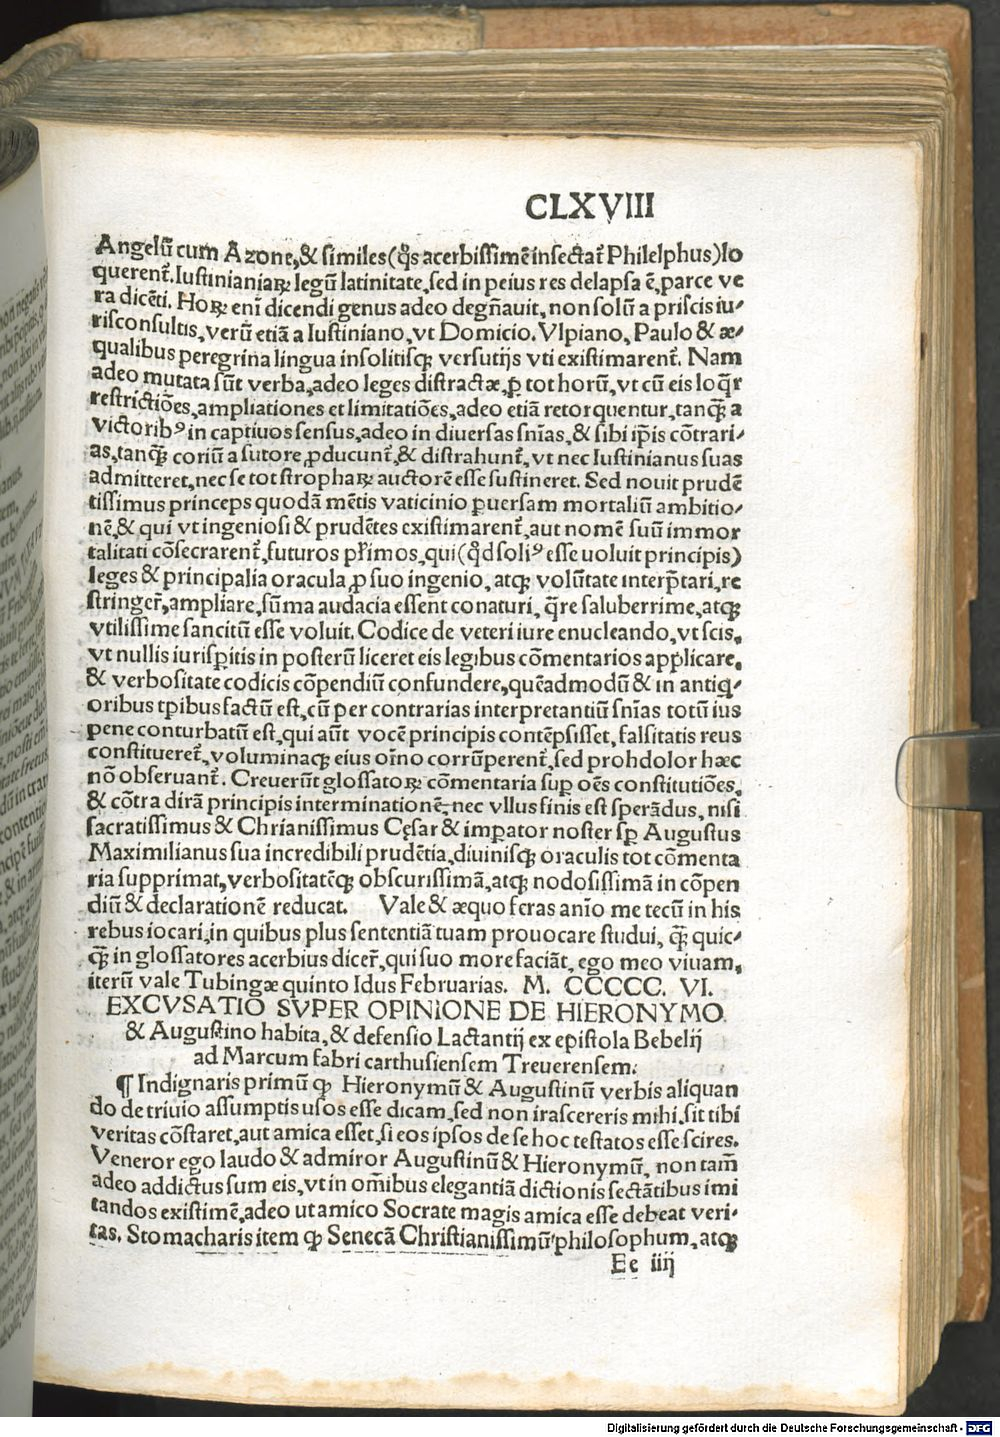 CLXVIII
Angelũ cum Azone,& similes(q̃s acerbissimẽ insectat᷑ Philelphus)lo
querent᷑. Iustinianiaꝝ legũ latinitate,sed in peius res delapsa ẽ,parce ve
ra dicẽti. Hoꝝ eni᷑ dicendi genus adeo degñauit, non solũ a priscis iu/
risconsultis,verũ etiã a Iustiniano,vt Domicio. Vlpiano, Paulo & æ/
qualibus peregrina lingua insolitisq̷ versutijs vti existimarent᷑. Nam
adeo mutata sũt verba,adeo leges distractæ,ꝑ tot horũ,vt cũ eis loq̃r
restrictiões,ampliationes et limitatiões,adeo etiã retorquentur,tanq̃ȝ a
victoribꝰ in captiuos sensus,adeo in diuersas sñias,& sibi ip̃is cõtrari/
as,tanq̃ȝ coriũ a sutore ꝓducunt᷑,& distrahunt᷑, vt nec Iustinianus suas
admitteret,nec se tot strophaꝝ auctorẽ esse sustineret. Sed nouit prudẽ
tissimus princeps quodã mẽtis vaticinio ꝑuersam mortaliũ ambitio/
nẽ,& qui vt ingeniosi & prudẽtes existimarent᷑, aut nomẽ suũ immor
talitati cõsecrarent᷑,futuros pl̃imos,qui(q̃d soliꝰ esse uoluit principis)
leges & principalia oracula,ꝓ suo ingenio, atq̷ volũtate interp̃tari,re
stringer̃,ampliare,sũma audacia essent conaturi, q̃re saluberrime,atq̷
vtilissime sancitũ esse voluit. Codice de veteri iure enucleando,vt scis,
vt nullis iurisp̃itis in posterũ liceret eis legibus cõmentarios applicare,
& verbositate codicis cõpendiũ confundere,quẽadmodũ & in antiq̃/
oribus tp̃ibus factũ est,cũ per contrarias interpretantiũ sñias totũ ius
pene conturbatũ est,qui aũt vocẽ principis contẽpsisset,falsitatis reus
constitueret᷑,voluminaq̷ eius oĩno corrũperent᷑,sed prohdolor hæc
nõ obseruant᷑. Creuerũt glossatoꝝ cõmentaria sup oẽs constitutiões,
& cõtra dirã principis interminationẽ,nec vllus finis est sperãdus, nisi
sacratissimus & Chrianissimus Cęsar & imꝑator noster sp̃ Augustus
Maximilianus sua incredibili prudẽtia,diuinisq̷ oraculis tot cõmenta
ria supprimat,verbositatẽq̷ obscurissimã,atq̷ nodosissimã in cõpen
diũ & declarationẽ reducat. Vale & æquo feras anio me tecũ in his
rebus iocari,in quibus plus sententiã tuam prouocare studui, q̃ȝ quic/
q̃ȝ in glossatores acerbius dicer̃,qui suo more faciãt, ego meo viuam,
iterũ vale Tubingæ quinto Idus Februarias. M. CCCCC. VI.
EXCVSATIO SVPER OPINIONE DE HIERONYMO
& Augustino habita,& defensio Lactantij ex epistola Bebelij
ad Marcum fabri carthusiensem Treuerensem.
¶ Indignaris primũ ꝙ Hieronymũ & Augustinũ verbis aliquan
do de triuio assumptis usos esse dicam,sed non irascereris mihi,sit tibi
veritas cõstaret,aut amica esset,si eos ipsos de se hoc testatos esse scires.
Veneror ego laudo & admiror Augustinũ & Hieronymũ, non tam̃
adeo addictus sum eis,vt in omibus elegantiã dictionis sectãtibus imi
tandos existimẽ,adeo ut amico Socrate magis amica esse debeat veri/
tas. Stomacharis item ꝙ Senecã Christianissimũ philosophum,atq̷
Ee iiij
Digitalisierung gefördert durch die Deutsche Forschungsgemeinschaft - DFG